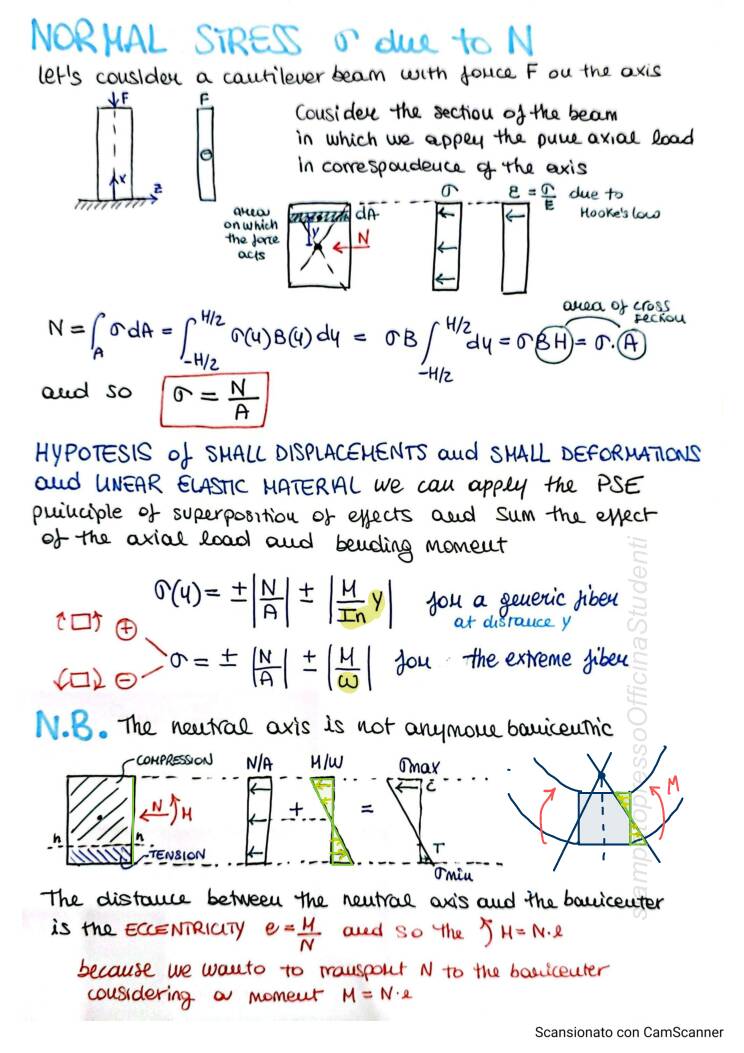 NORMAL STRESS σ due to N
let's consider a cantilever beam with force F on the axis
F
F
Consider the section of the beam
in which we appey the pure axial load
in correspondence of the axis
x
z
⊖
area
on which
the force
acts
dA
y
N
σ
ε = σ/E due to
Hooke's law
N = ∫_A σ dA = ∫_{-H/2}^{H/2} σ(y) B(y) dy = σB ∫_{-H/2}^{H/2} dy = σBH = σ·A
area of cross
section
and so σ = N/A
HYPOTESIS of SMALL DISPLACEMENTS and SMALL DEFORMATIONS
and LINEAR ELASTIC MATERIAL we can apply the PSE
principle of superposition of effects and sum the effect
of the axial load and bending moment
σ(y) = ± |N/A| ± |M/In y| for a generic fiber
at distance y
⊕
⊖
σ = ± |N/A| ± |M/W| for the extreme fiber
N.B. The neutral axis is not anymore baricentric
COMPRESSION
N/A
M/W
σmax
N
M
+
=
C
n
n
TENSION
T
σmin
M
The distance between the neutral axis and the baricenter
is the ECCENTRICITY e = M/N and so the M = N·e
because we wanto to transport N to the baricenter
considering a moment M = N·e
stampopressoOfficinaStudenti
Scansionato con CamScanner